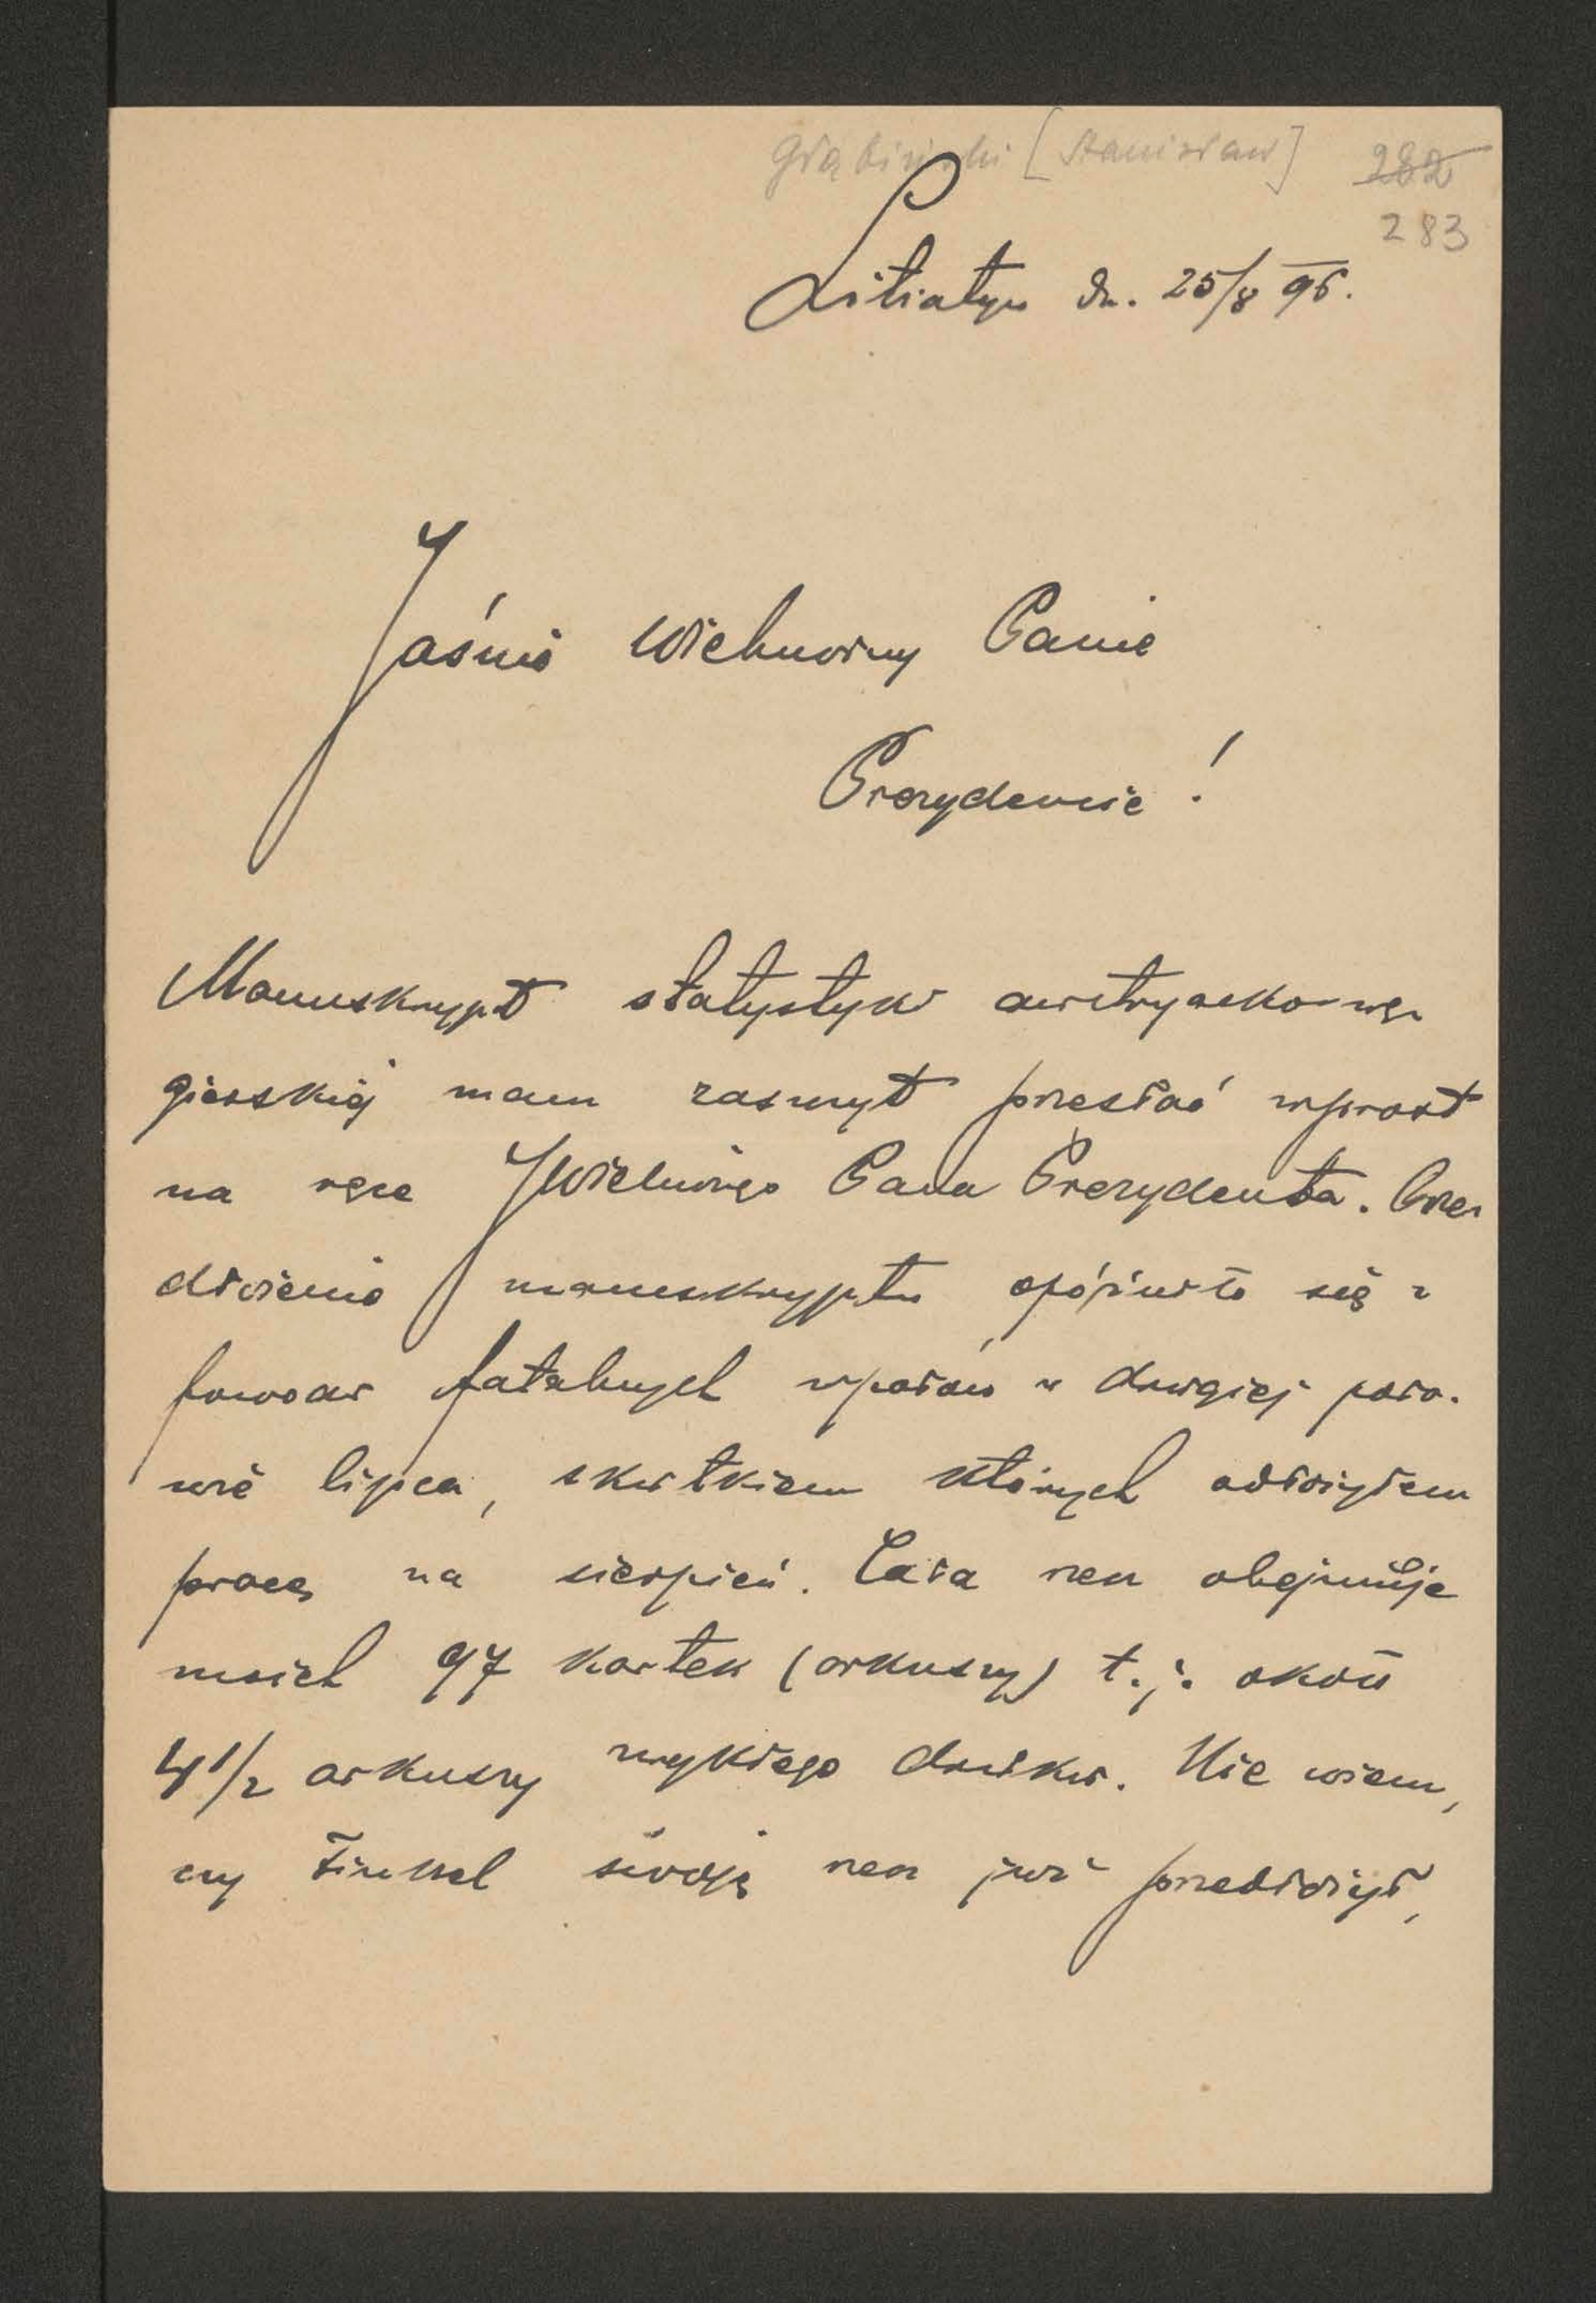 Głąbiński [Stanisław] 282
283
Litiatyn dn. 25/8 96.
Jaśnie Wielmożny Panie
Prezydencie!
Manuskrypt statystyki austryacko-wę-
gierskiéj mam zaszczyt przesłać wprost
na ręce JWielmożnego Pana Prezydenta. Prze-
dłożenie manuskryptu opóźniło się z
powodu fatalnych upałów w drugiej poło-
wie lipca, skutkiem których odłożyłem
pracę na sierpień. Cała rzecz obejmuje
moich 97 kartek (arkuszy) t.j. około
4 1/2 arkuszy zwykłego druku. Nie wiem,
czy Finkel swoję rzecz już przedłożył,